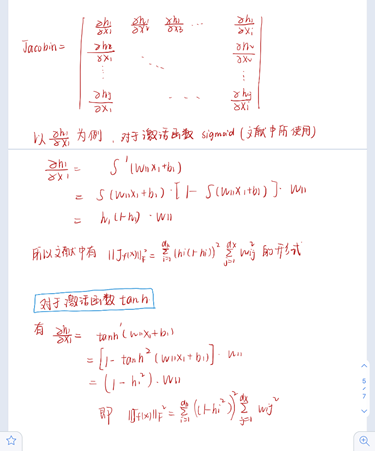 Jacobin =
∂h₁/∂x₁ ∂h₁/∂x₂ ∂h₁/∂x₃ ... ∂h₁/∂xᵢ
∂h₂/∂x₁ ... ∂h₂/∂xᵢ
⋮ ⋮
∂hⱼ/∂x₁ ... ∂hⱼ/∂xᵢ
以 ∂h₁/∂x₁ 为例，对于激活函数 sigmoid (文献中所使用)
∂h₁/∂x₁ = S'(W₁₁x₁+b₁)
= S(W₁₁x₁+b₁)·[1-S(W₁₁x₁+b₁)]·W₁₁
= h₁(1-h₁)·W₁₁
所以文献中有 ||Jf(x)||²_F = Σ_{i=1}^{dh} (hi(1-hi))² Σ_{j=1}^{dx} Wij² 的形式
对于激活函数 tanh
有 ∂h₁/∂x₁ = tanh'(W₁₁x₁+b₁)
= [1-tanh²(W₁₁x₁+b₁)]·W₁₁
= (1-h₁²)·W₁₁
即 ||Jf(x)||_F² = Σ_{i=1}^{dh} ((1-hi²))² Σ_{j=1}^{dx} Wij²
5
/
7